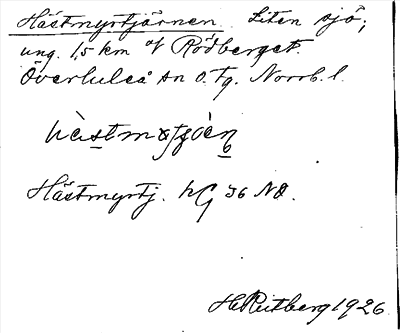 Hästmyrtjärnen. Liten sjö;
ung. 1,5 km åt Rödberget.
Överluleå sn o. tg. Norrb. l.
Hästmyrtj. hG 36 NO.
H Reitberg 1926.